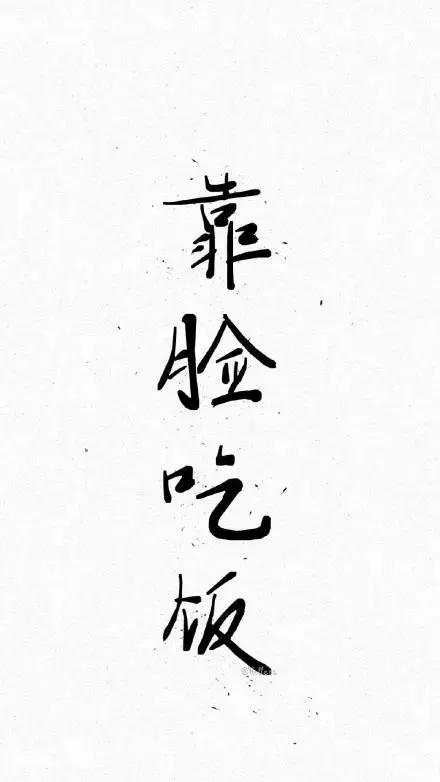 靠脸吃饭